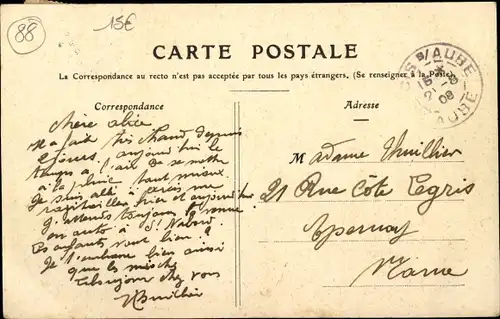 88
15€
CARTE POSTALE
La Correspondance au recto n'est pas acceptée par tous les pays étrangers. (Se renseigner à la Poste).
S S/AUBE
15
2 - 8
08
AUBE
Correspondance
Chère Alice
Il a fait très chaud depuis
2 jours. aujourd'hui le
temps a l'air de se mettre
à la pluie tant mieux.
Je suis allé à me
ravitailler hier et aujourd'hui
J'attends toujours ta venue
en auto à St Nabord
Les enfants vont bien ?
Je t'embrasse bien ainsi
que les mioches
chez vous
Adresse
Madame Thuillier
21 Rue Côte Legris
Epernay
Marne